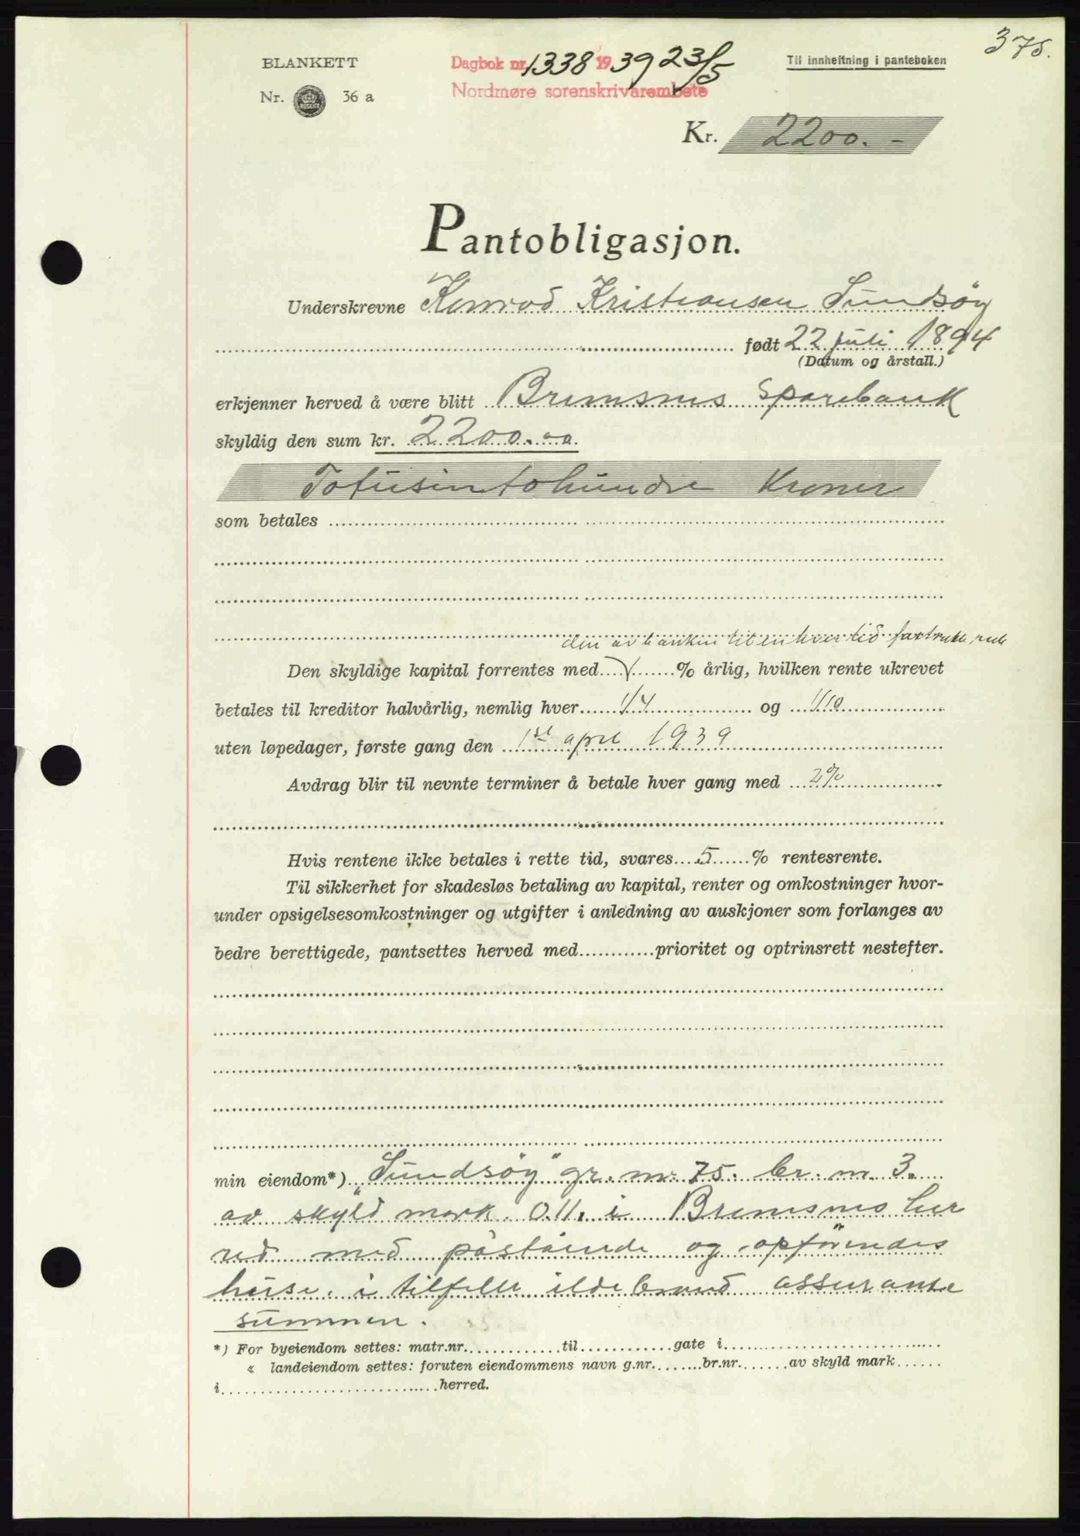 375.
BLANKETT
Nr. 36 a
Dagbok nr. 1338 1939 23/5
Nordmøre sorenskrivarembete
Til innheftning i panteboken
Kr. 2200.-
Pantobligasjon.
Underskrevne Konrad Kristiansen Sundsøy
født 22 juli 1894
(Datum og årstall.)
erkjenner herved å være blitt Bremsnes Sparebank
skyldig den sum kr. 2200.00.
Totusintohundre Kroner
som betales
den av banken til enhver tid fastsatte rente
Den skyldige kapital forrentes med % årlig, hvilken rente ukrevet
betales til kreditor halvårlig, nemlig hver 1/4 og 1/10
uten løpedager, første gang den 1st april 1939
Avdrag blir til nevnte terminer å betale hver gang med 2%
Hvis rentene ikke betales i rette tid, svares 5 % rentesrente.
Til sikkerhet for skadesløs betaling av kapital, renter og omkostninger hvor-
under opsigelsesomkostninger og utgifter i anledning av auskjoner som forlanges av
bedre berettigede, pantsettes herved med prioritet og optrinsrett nestefter.
min eiendom*) "Sundsøy" gr. nr. 75. br. nr. 3.
av skyld mark. 0.11. i Bremsnes her
red med påstående og opførendes
huse. i tilfelle ildebrand assuranse
summen.
*) For byeiendom settes: matr.nr. til gate i
« landeiendom settes: foruten eiendommens navn g.nr. br.nr. av skyld mark
i herred.